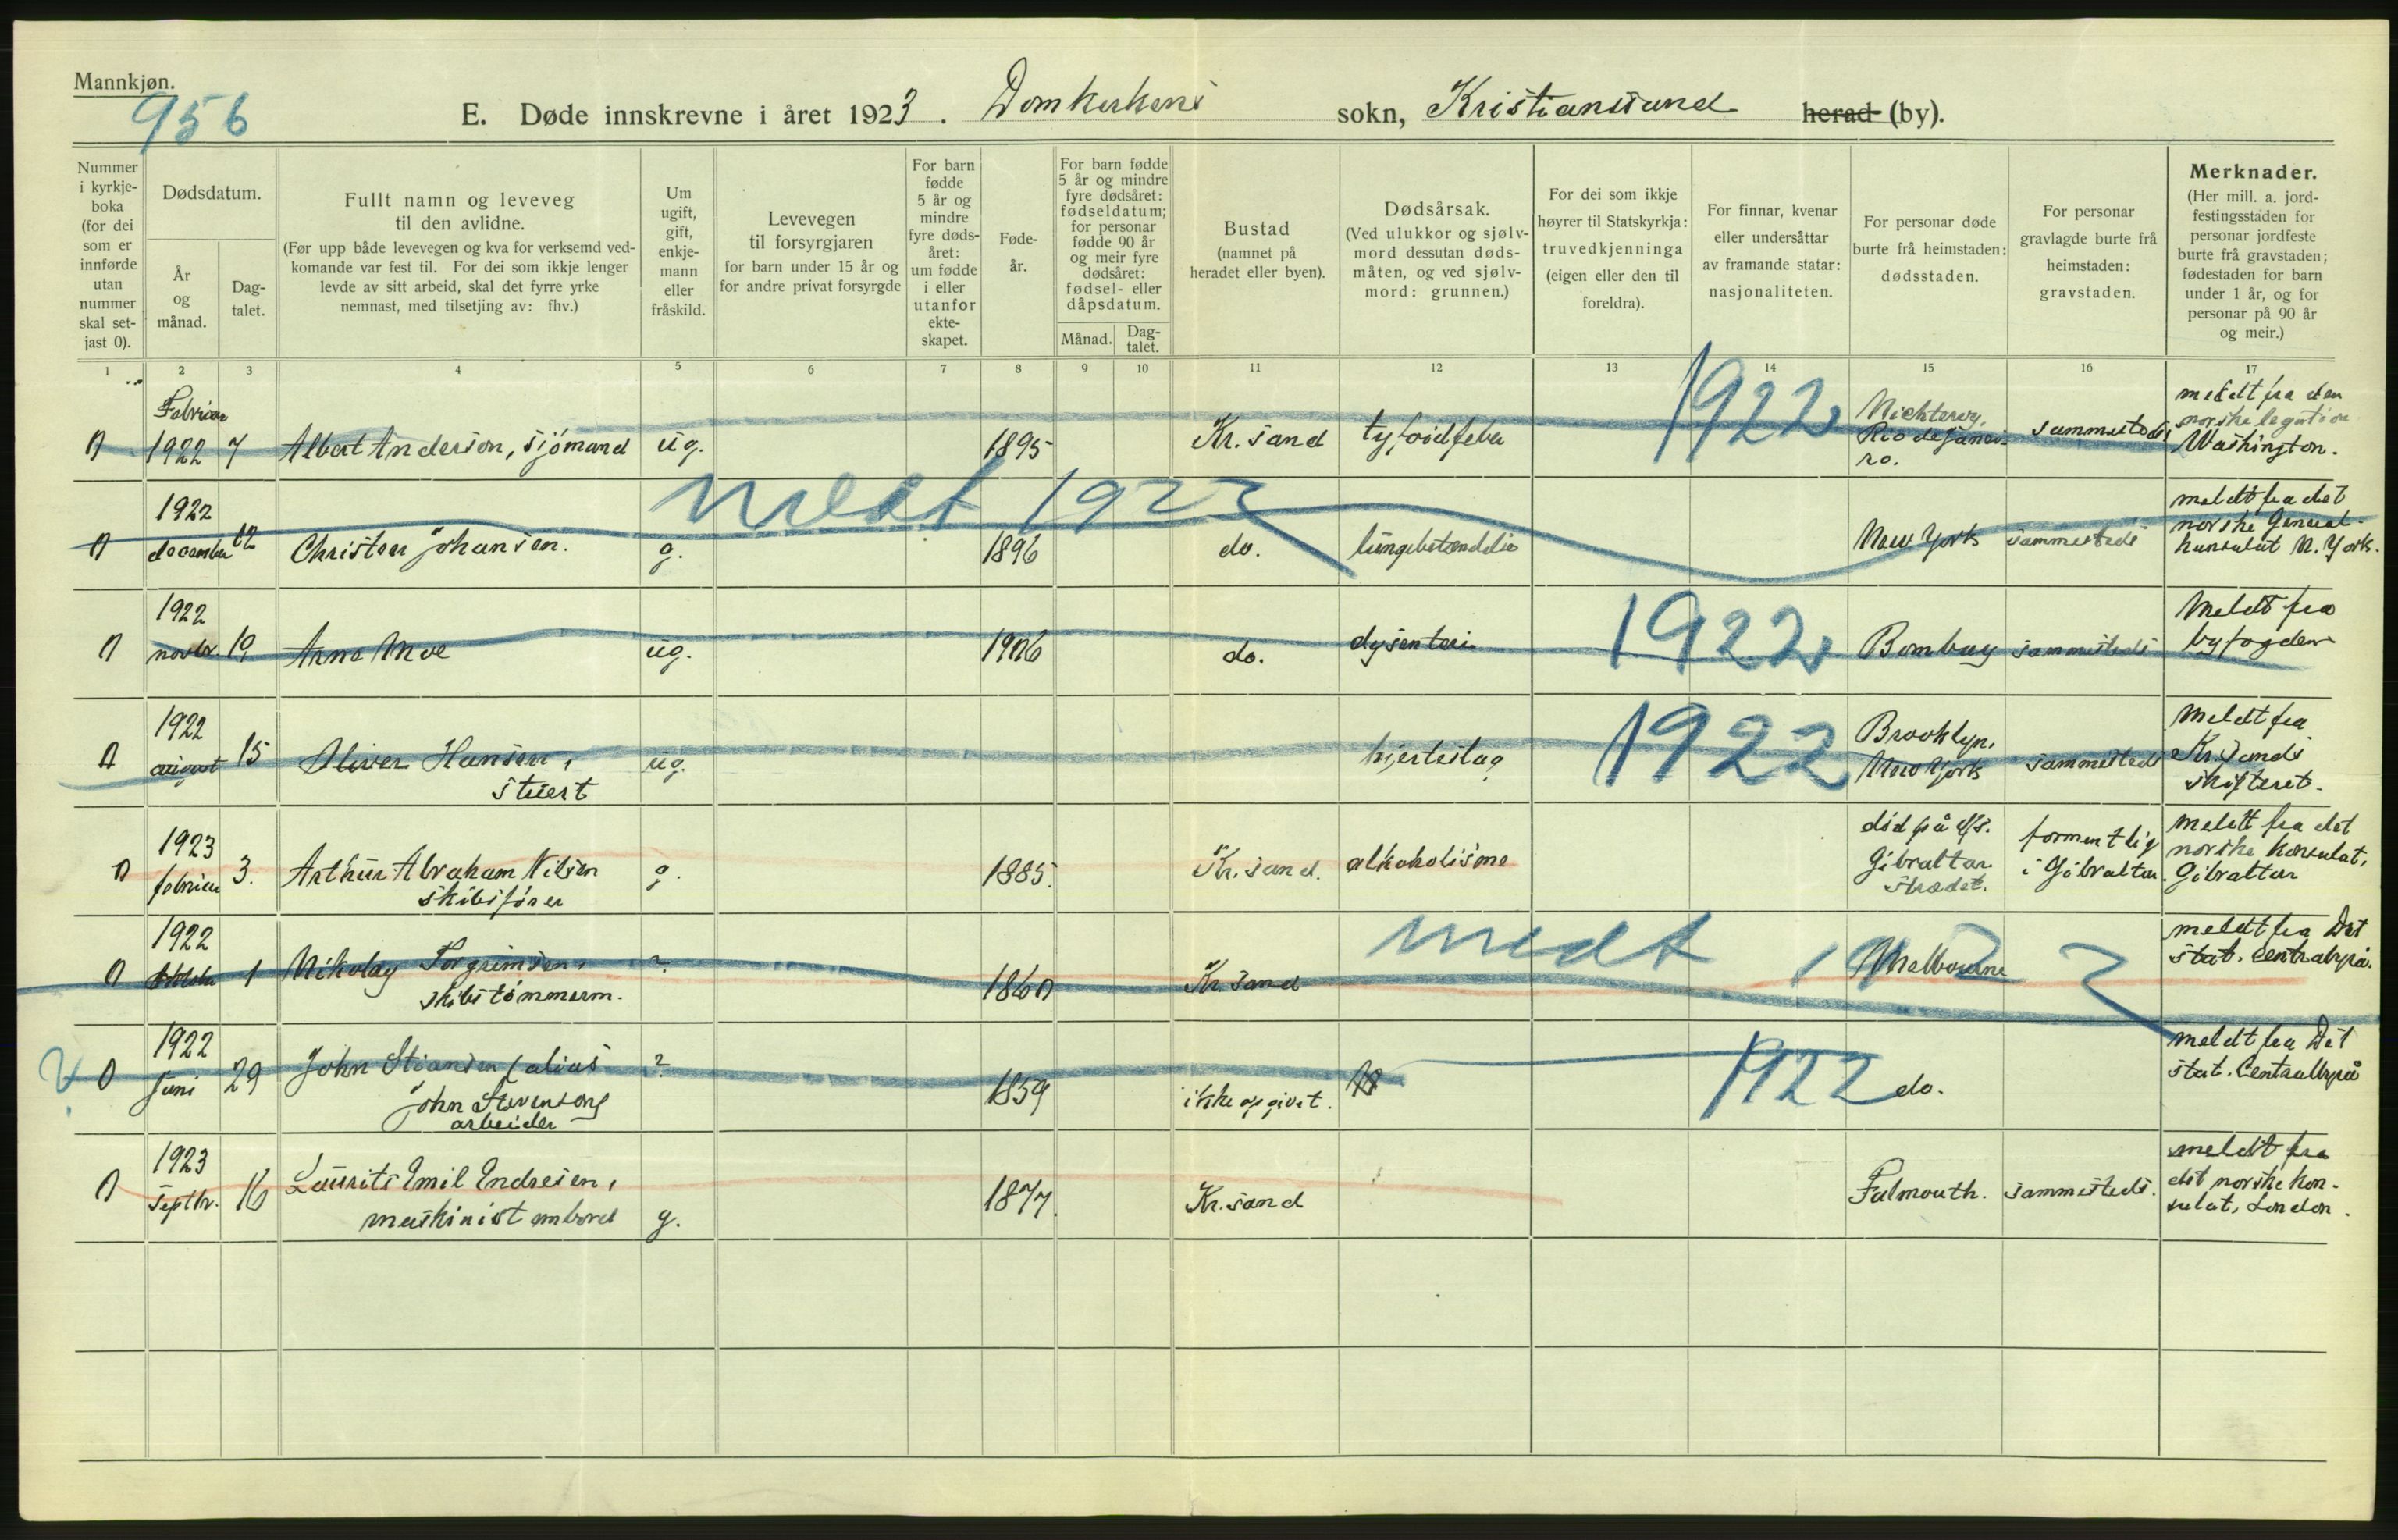 Mannkjøn.
956
E. Døde innskrevne i året 1923. Domkirkens sokn, Kristianssand herad (by).
Nummer i kyrkje-boka (for dei som er innførde utan nummer skal set-jast 0).
Dødsdatum.
År og månad.
Dag-talet.
Fullt namn og leveveg til den avlidne.
(Før upp både levevegen og kva for verksemd ved-komande var fest til. For dei som ikkje lenger levde av sitt arbeid, skal det fyrre yrke nemnast, med tilsetjing av: fhv.)
Um ugift, gift, enkje-mann eller fråskild.
Levevegen til forsyrgjaren for barn under 15 år og for andre privat forsyrgde
For barn fødde 5 år og mindre fyre døds-året: um fødde i eller utanfor ekte-skapet.
Føde-år.
For barn fødde 5 år og mindre fyre dødsåret: fødseldatum; for personar fødde 90 år og meir fyre dødsåret: fødsel- eller dåpsdatum.
Månad. Dag-talet.
Bustad (namnet på heradet eller byen).
Dødsårsak. (Ved ulukkor og sjølv-mord dessutan døds-måten, og ved sjølv-mord: grunnen.)
For dei som ikkje høyrer til Statskyrkja: truvedkjenninga (eigen eller den til foreldra).
For finnar, kvenar eller undersåttar av framande statar: nasjonaliteten.
For personar døde burte frå heimstaden: dødsstaden.
For personar gravlagde burte frå heimstaden: gravstaden.
Merknader. (Her mill. a. jord-festingsstaden for personar jordfeste burte frå gravstaden; fødestaden for barn under 1 år, og for personar på 90 år og meir.)
1 2 3 4 5 6 7 8 9 10 11 12 13 14 15 16 17
0 Februar 1922 7 Albert Anderson, sjømand ug. 1895 Kr.sand tyfoidfeber 1922 Rio de Janei-ro. sammesteds meldt fra den norske legation Washington.
meldt 1922
0 1922 december 12 Christen Johansen. g. 1896 do. lungebetændelse New York sammesteds meldt fra det norske General-konsulat N. York.
0 1922 novbr 19 Arne Moe ug. 1906 do. dysenteri 1922 Bombay sammesteds Meldt fra byfogden
0 1922 august 15 Oliver Hansen, stuert ug. hjerteslag 1922 Brooklyn, New York sammesteds Meldt fra Kr.sands skifteret.
0 1923 februar 3. Arthur Abraham Nilsen skibsfører g. 1885. Kr.sand. alkoholisme død på d/s. Gibraltar strædet. formentlig i Gibraltar. Meldt fra det norske konsulat, Gibraltar
meldt 1922
0 1922 oktober 1 Nikolay Torgrimsen, skibstømmerm. ?. 1860 Kr.sand Melbourne meldt fra Det stat. Centralbyrå.
? 0 1922 juni 29 John Stiansen (alias John Stevenson) arbeider ?. 1859 ikke opgivet. 1922 do. meldt fra Det stat. Centralbyrå
0 1923 Septbr. 16 Laurits Emil Endresen, maskinist ombord g. 1877. Kr.sand Falmouth. sammesteds. meldt fra det norske kon-sulat, London.